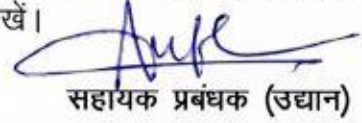 खें।
सहायक प्रबंधक (उद्यान)